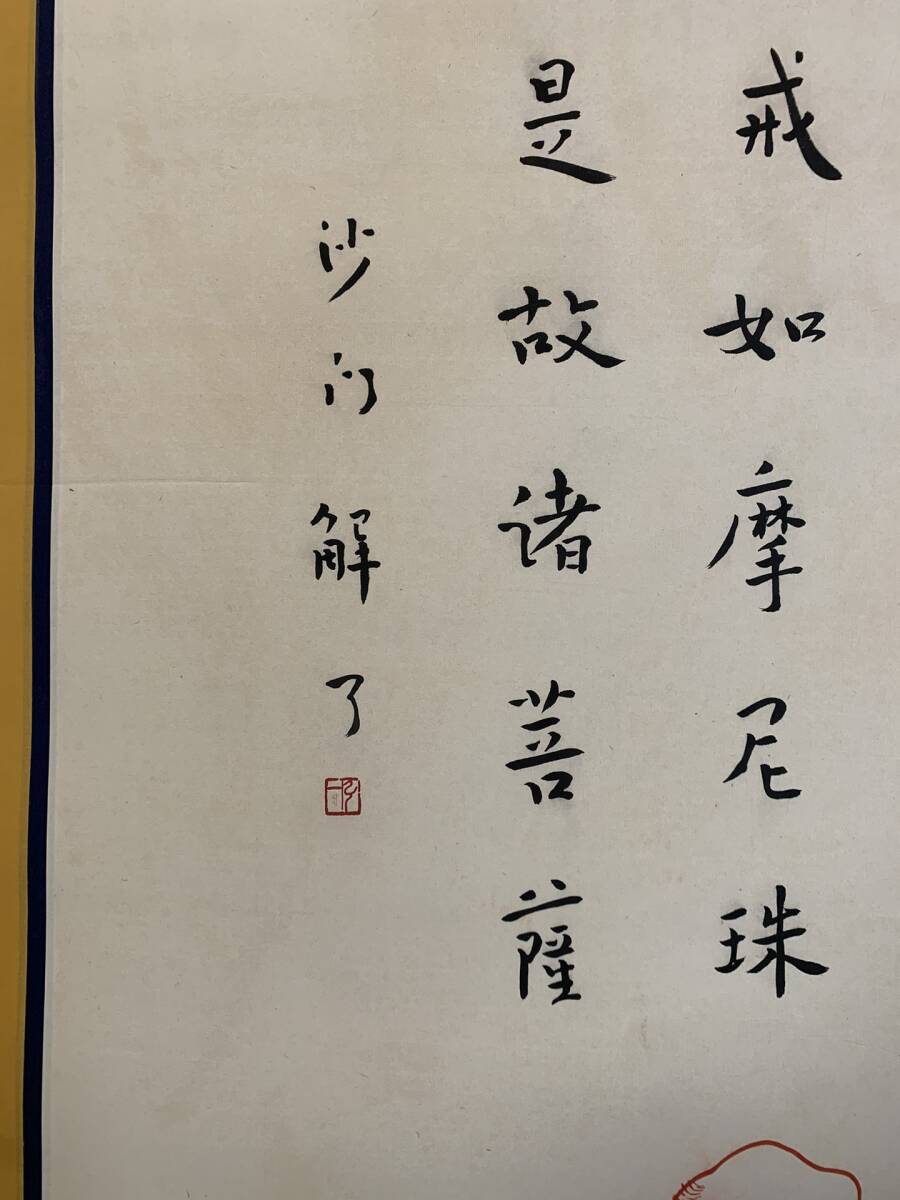 戒如摩尼珠
是故诸菩薩
沙门解了